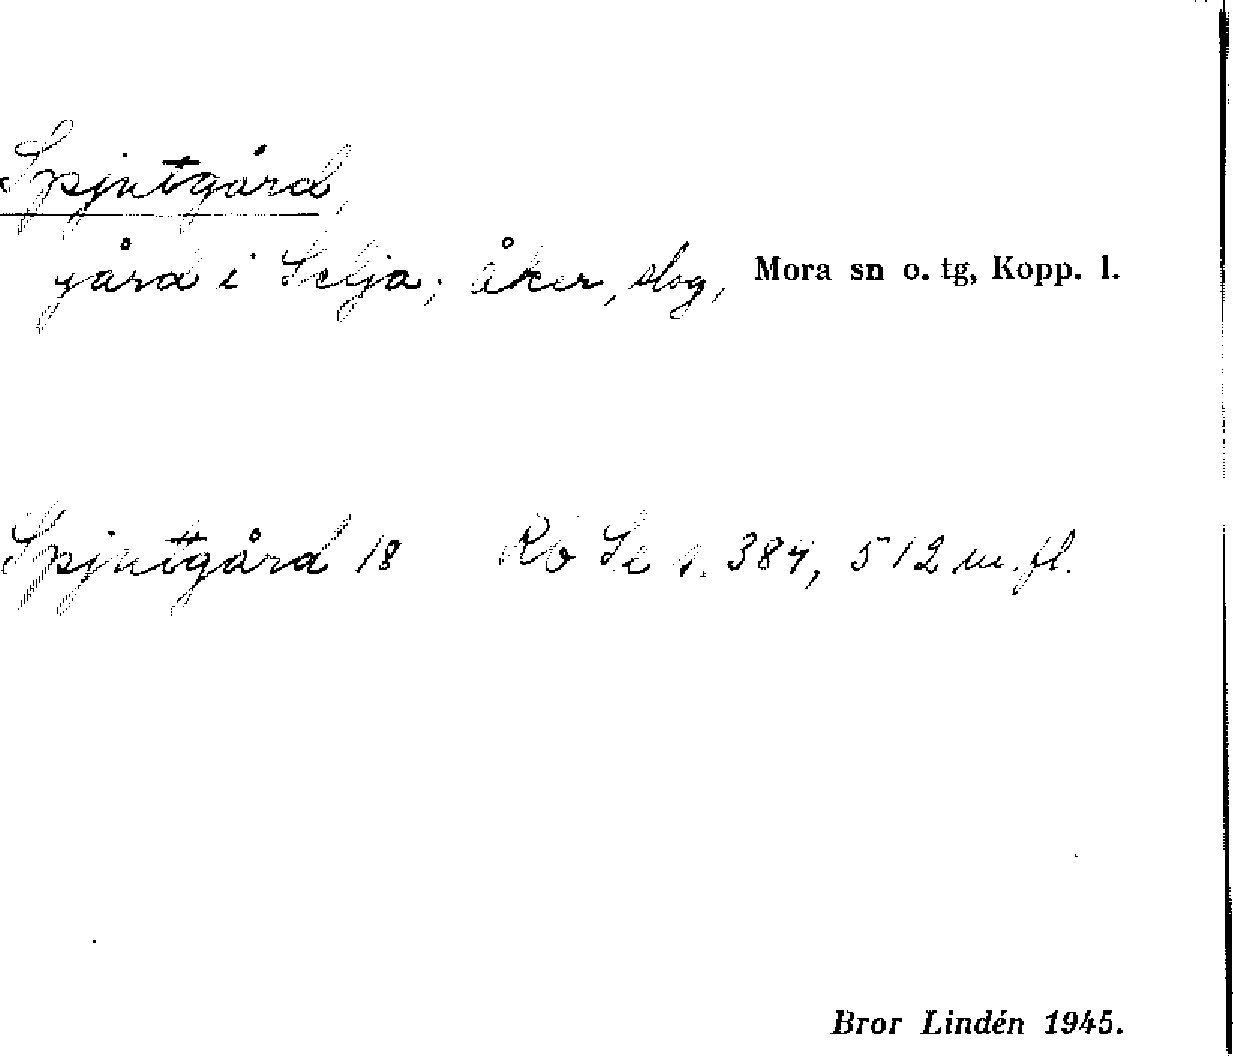 Spjutgård,
gård i Selja; åker, slog, Mora sn o. tg, Kopp. l.
Spjuttgård 18 Rö Se s. 384, 512 m. fl.
Bror Lindén 1945.